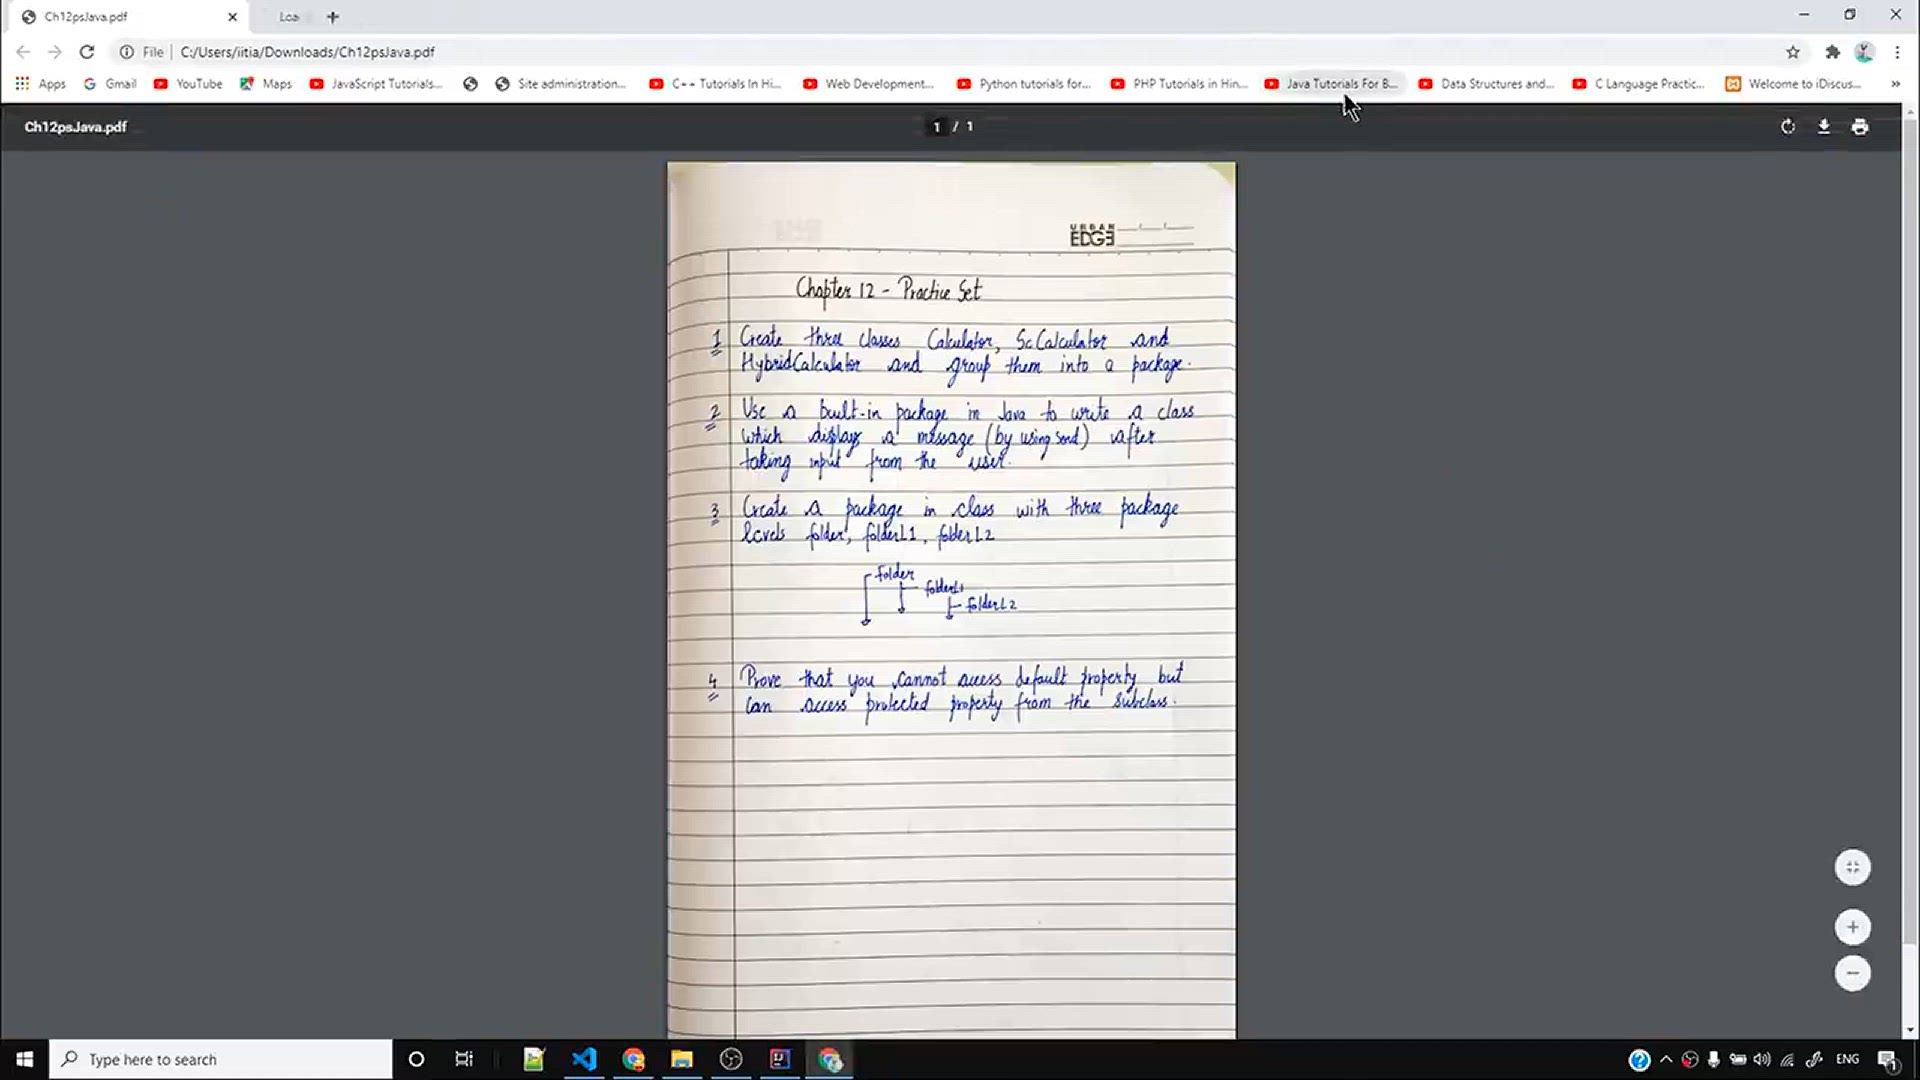 Ch12psJava.pdf
Loa
File C:/Users/iitia/Downloads/Ch12psJava.pdf
Apps Gmail YouTube Maps JavaScript Tutorials... Site administration... C++ Tutorials In Hi... Web Development... Python tutorials for... PHP Tutorials in Hin... Java Tutorials For B... Data Structures and... C Language Practic... Welcome to iDiscus... »
Ch12psJava.pdf 1 / 1
URBAN
EDGE
Chapter 12 - Practice Set
1 Create three classes Calculator, ScCalculator and
HybridCalculator and group them into a package.
2 Use a built-in package in Java to write a class
which displays a message (by using sout) after
taking input from the user.
3 Create a package in class with three package
levels folder, folderL1, folderL2
folder
folderL1
folderL2
4 Prove that you cannot access default property but
can access protected property from the subclass.
Type here to search
ENG